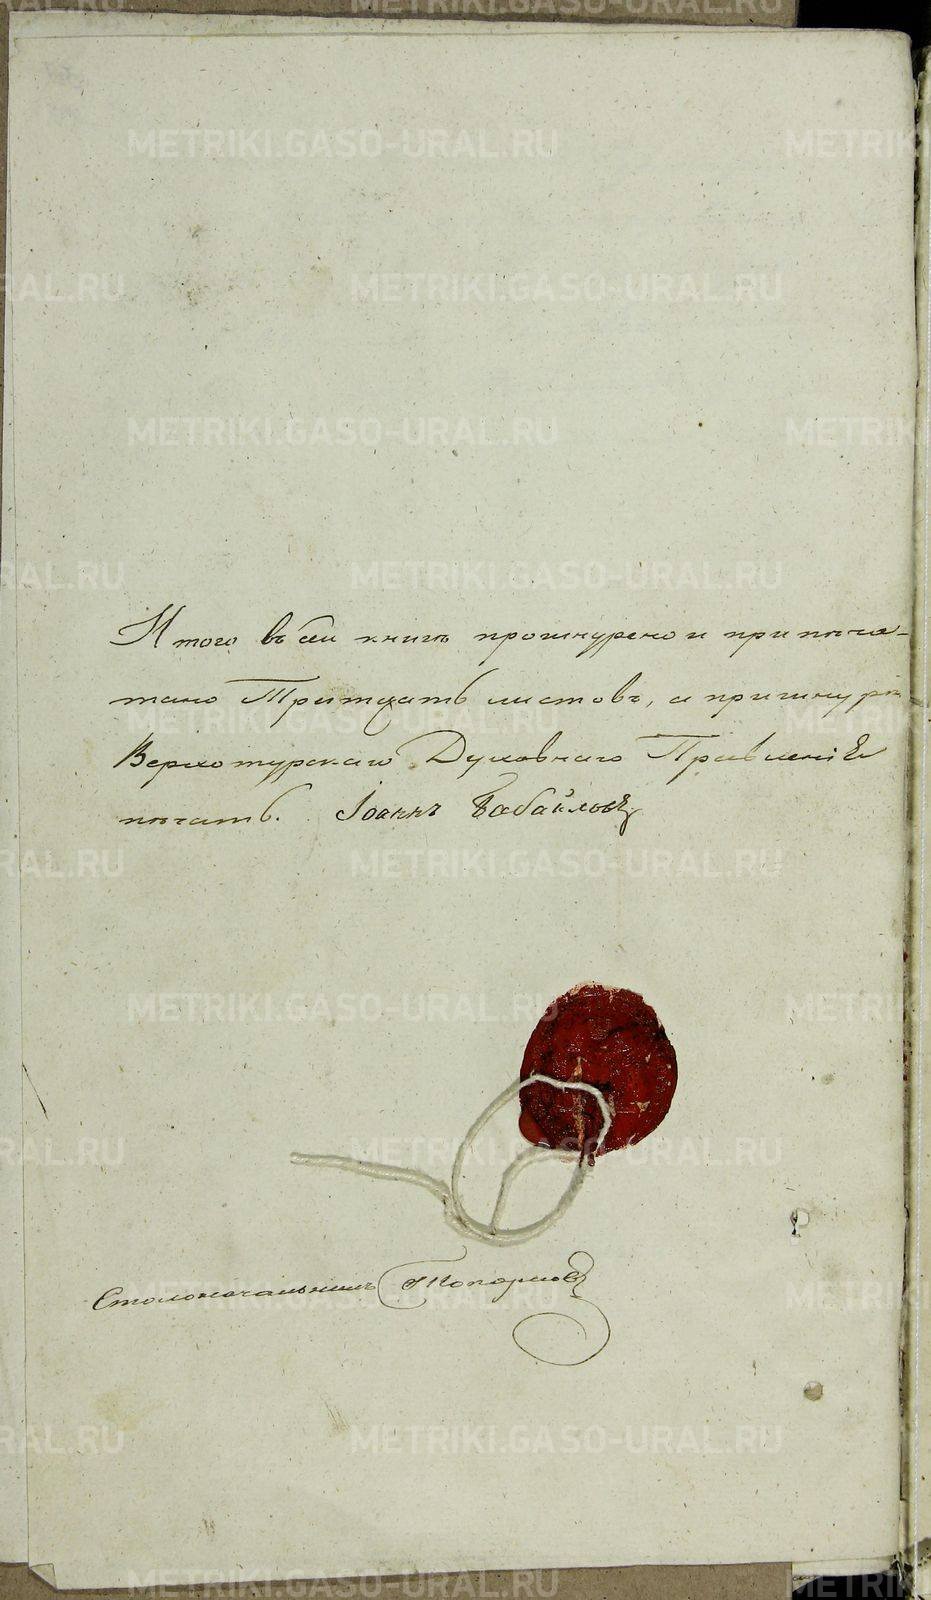 Итого въ сей книгѣ прошнурено и припеча-
тано Тритцать листовъ, а при шнурѣ
Верхотурскаго Духовнаго Правленія
печать. Іоаннъ
Столоначальникъ Топорковъ
METRIKI.GASO-URAL.RU